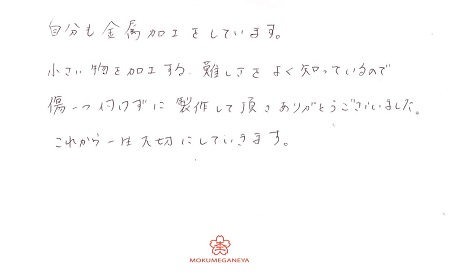 自分も金属加工をしています。
小さい物を加工する難しさをよく知っているので
傷一つ付けずに製作して頂きありがとうございました。
これから一生大切にしていきます。
MOKUMEGANEYA